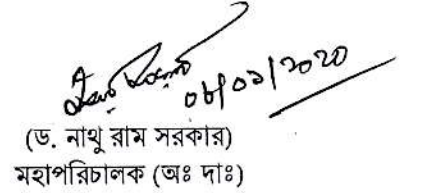 ০৮/০১/২০২০
(ড. নাথু রাম সরকার)
মহাপরিচালক (অঃ দাঃ)